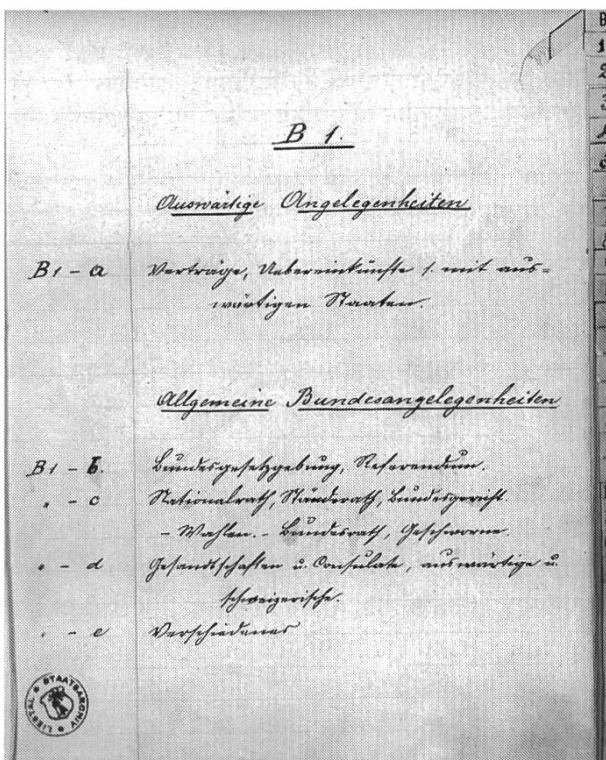 B 1.
Auswärtige Angelegenheiten
B1 - a Verträge, Uebereinkünfte mit aus-
wärtigen Staaten.
Allgemeine Bundesangelegenheiten
B1 - b. Bundesgesetzgebung, Referendum.
" - c Nationalrath, Ständerath, Bundesgericht
- Wahlen. - Bundesrath, Geschworne.
" - d Gesandtschaften u. Consulate, auswärtige u.
schweizerische.
" - e Verschiedenes
STAATSARCHIV
LIESTAL
B
1
2
3